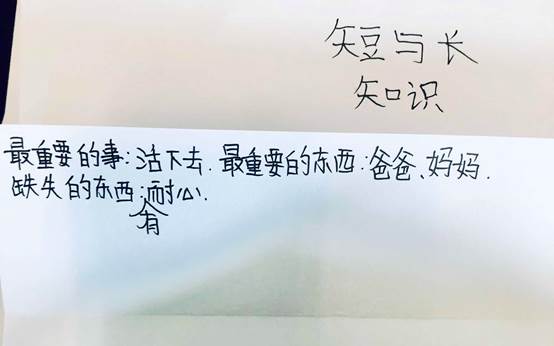 短与长
知识
最重要的事:活下去.最重要的东西:爸爸、妈妈.
缺失的东西:有耐心.